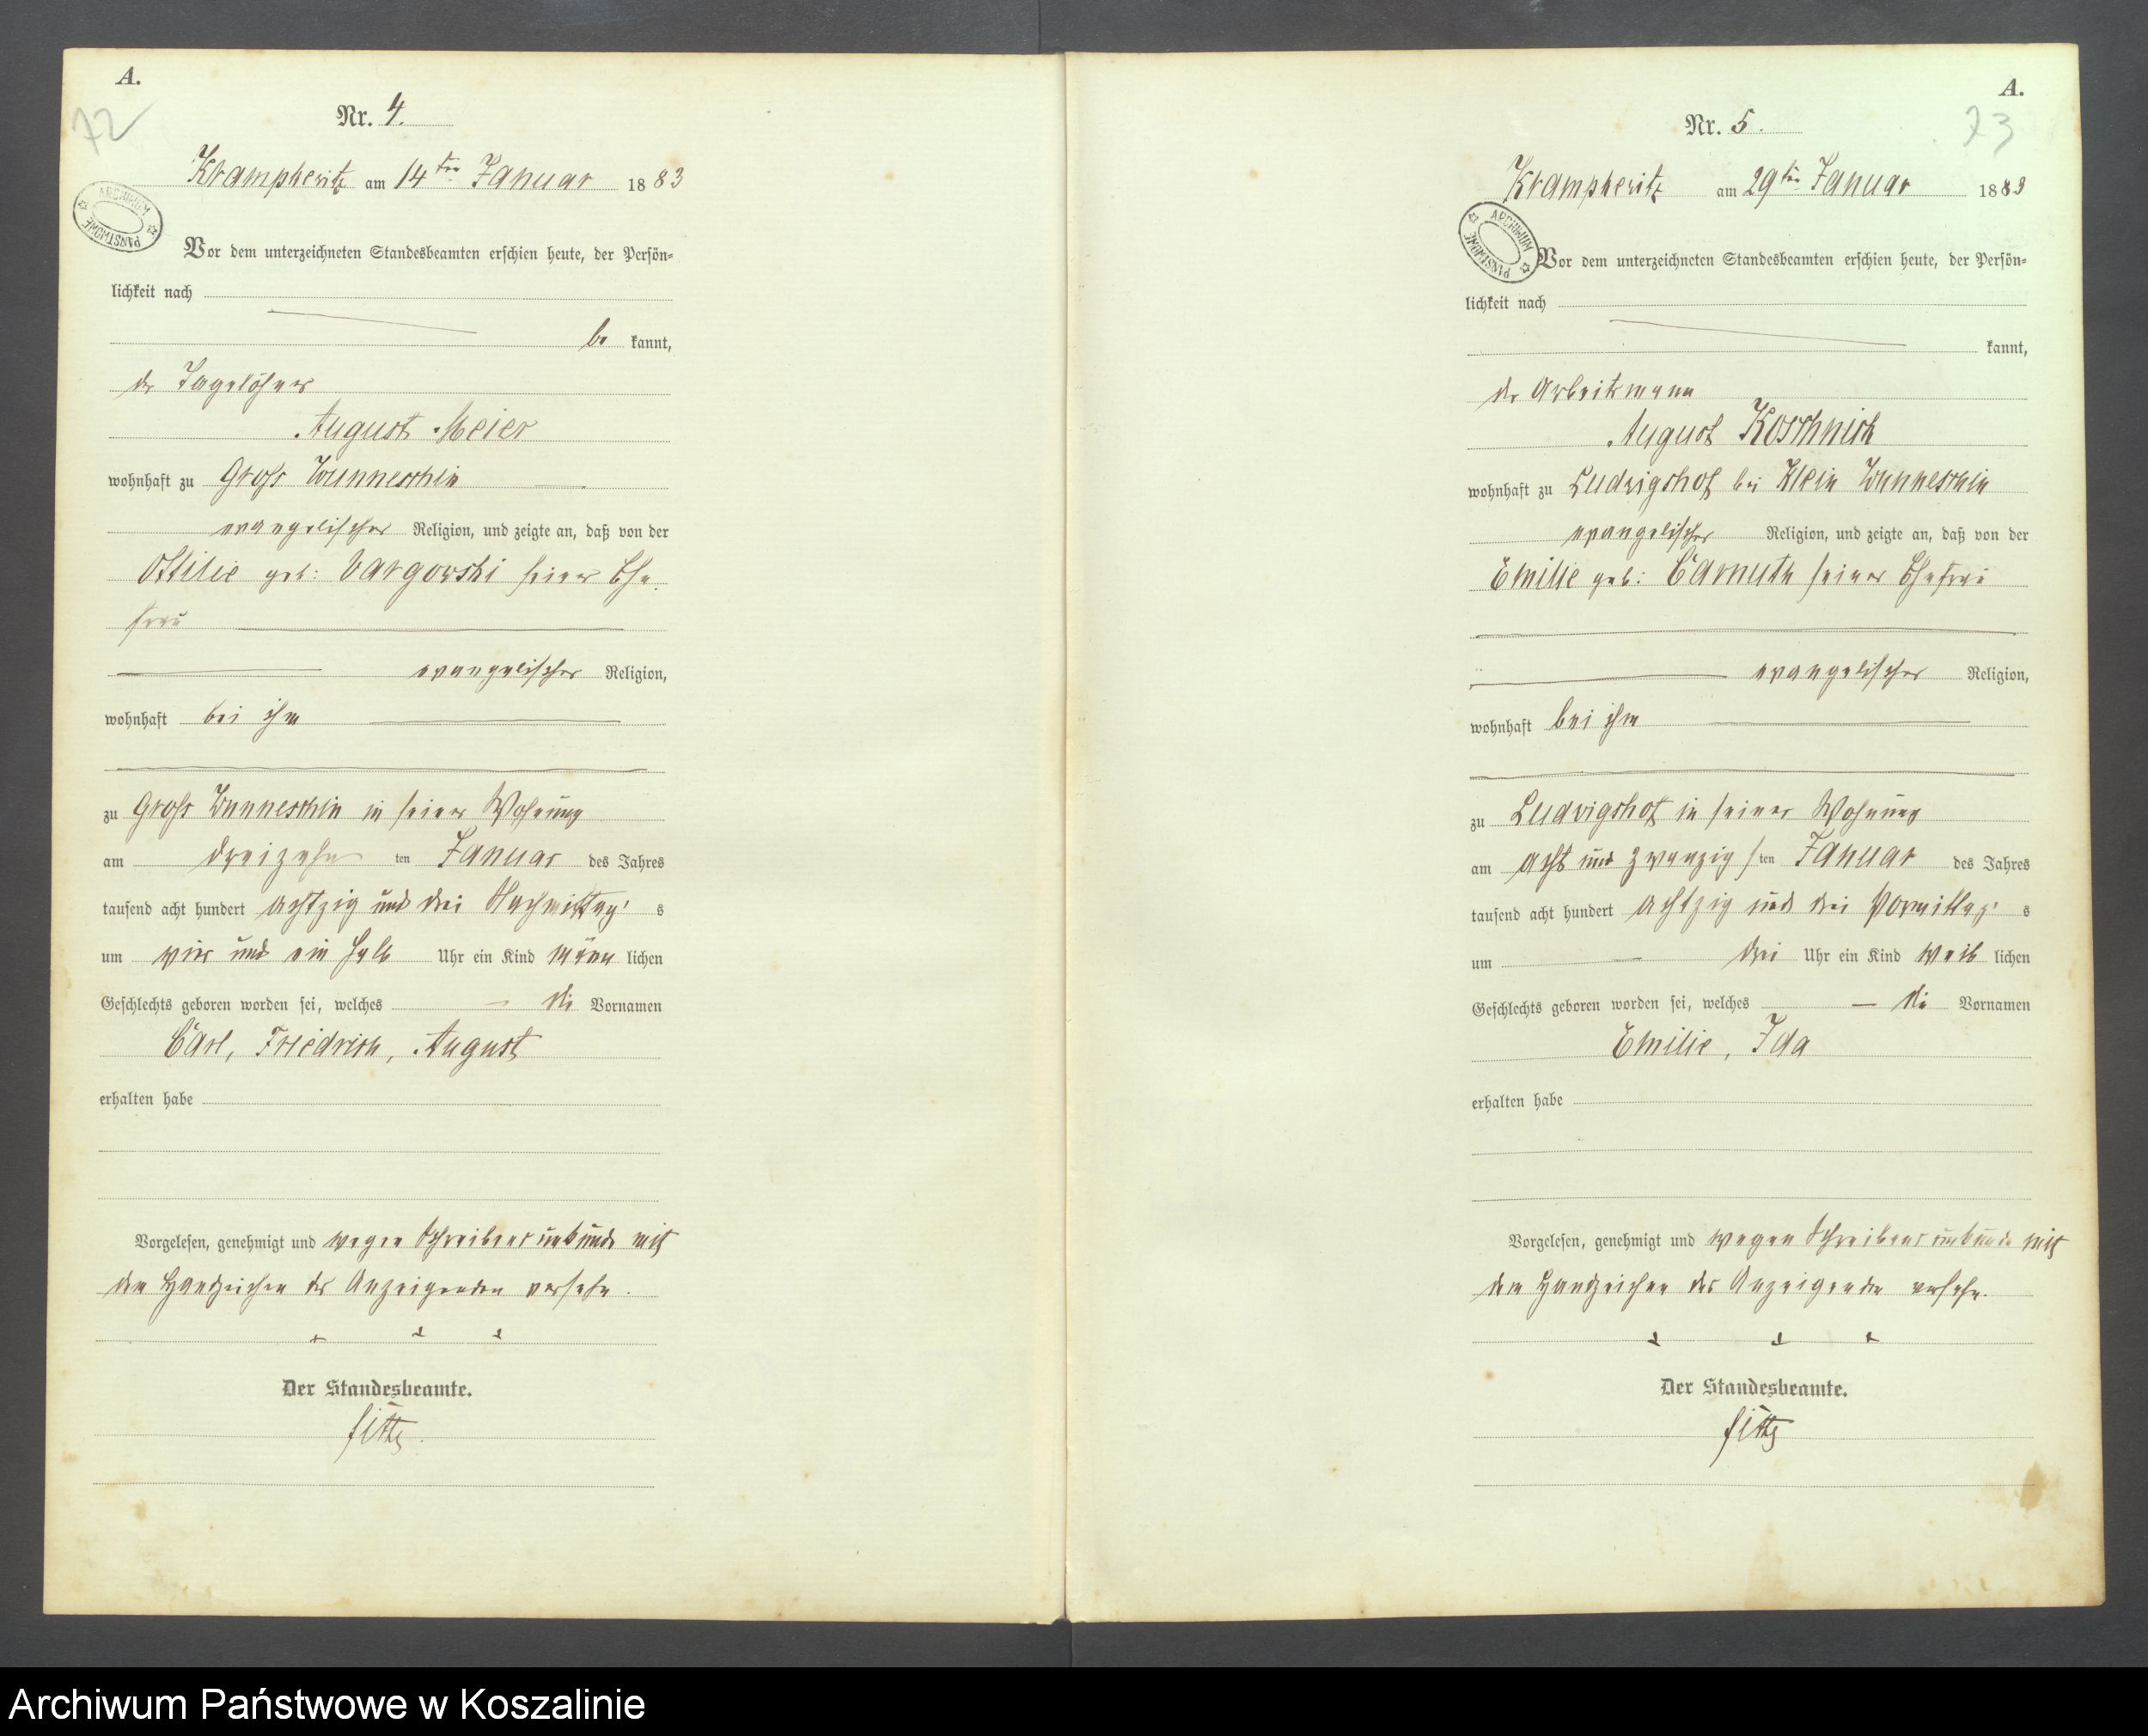 A.
72
Nr. 4.
Krampkewitz am 14ten Januar 1883
ARCHIWUM PAŃSTWOWE
Vor dem unterzeichneten Standesbeamten erschien heute, der Persön-
lichkeit nach
be kannt,
der Tagelöhner
August Meier
wohnhaft zu Groß Wunneschin
evangelischer Religion, und zeigte an, daß von der
Ottilie geb: Vargowski seiner Ehe
frau
evangelischer Religion,
wohnhaft bei ihm
zu Groß Wunneschin in seiner Wohnung
am dreizehn ten Januar des Jahres
tausend acht hundert achtzig und drei Nachmittag s
um vier und ein halb Uhr ein Kind männ lichen
Geschlechts geboren worden sei, welches die Vornamen
Carl, Friedrich, August
erhalten habe
Vorgelesen, genehmigt und wegen Schreibensunkunde mit
dem Handzeichen des Anzeigenden versehn.
+ + +
Der Standesbeamte.
A.
73
Nr. 5.
Krampkewitz am 29ten Januar 1883
ARCHIWUM PAŃSTWOWE
Vor dem unterzeichneten Standesbeamten erschien heute, der Persön-
lichkeit nach
kannt,
der Arbeitsmann
August Koschnick
wohnhaft zu Ludwigshof bei Klein Wunneschin
evangelischer Religion, und zeigte an, daß von der
Emilie geb: Carmuth seiner Ehefrau
evangelischer Religion,
wohnhaft bei ihm
zu Ludwigshof in seiner Wohnung
am acht und zwanzig s ten Januar des Jahres
tausend acht hundert achtzig und drei Vormittag s
um drei Uhr ein Kind weib lichen
Geschlechts geboren worden sei, welches die Vornamen
Emilie, Ida
erhalten habe
Vorgelesen, genehmigt und wegen Schreibensunkunde mit
dem Handzeichen des Anzeigenden versehn.
+ + +
Der Standesbeamte.
Archiwum Państwowe w Koszalinie